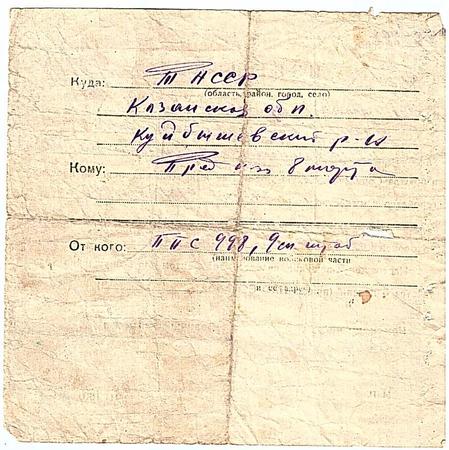 Куда: Т АССР
(область, район, город, село)
Казанская обл.
Куйбышевский р-н
Кому: Пред к-за 8 марта
От кого: ППС 998, 9 сп штаб
(наименование войсковой части